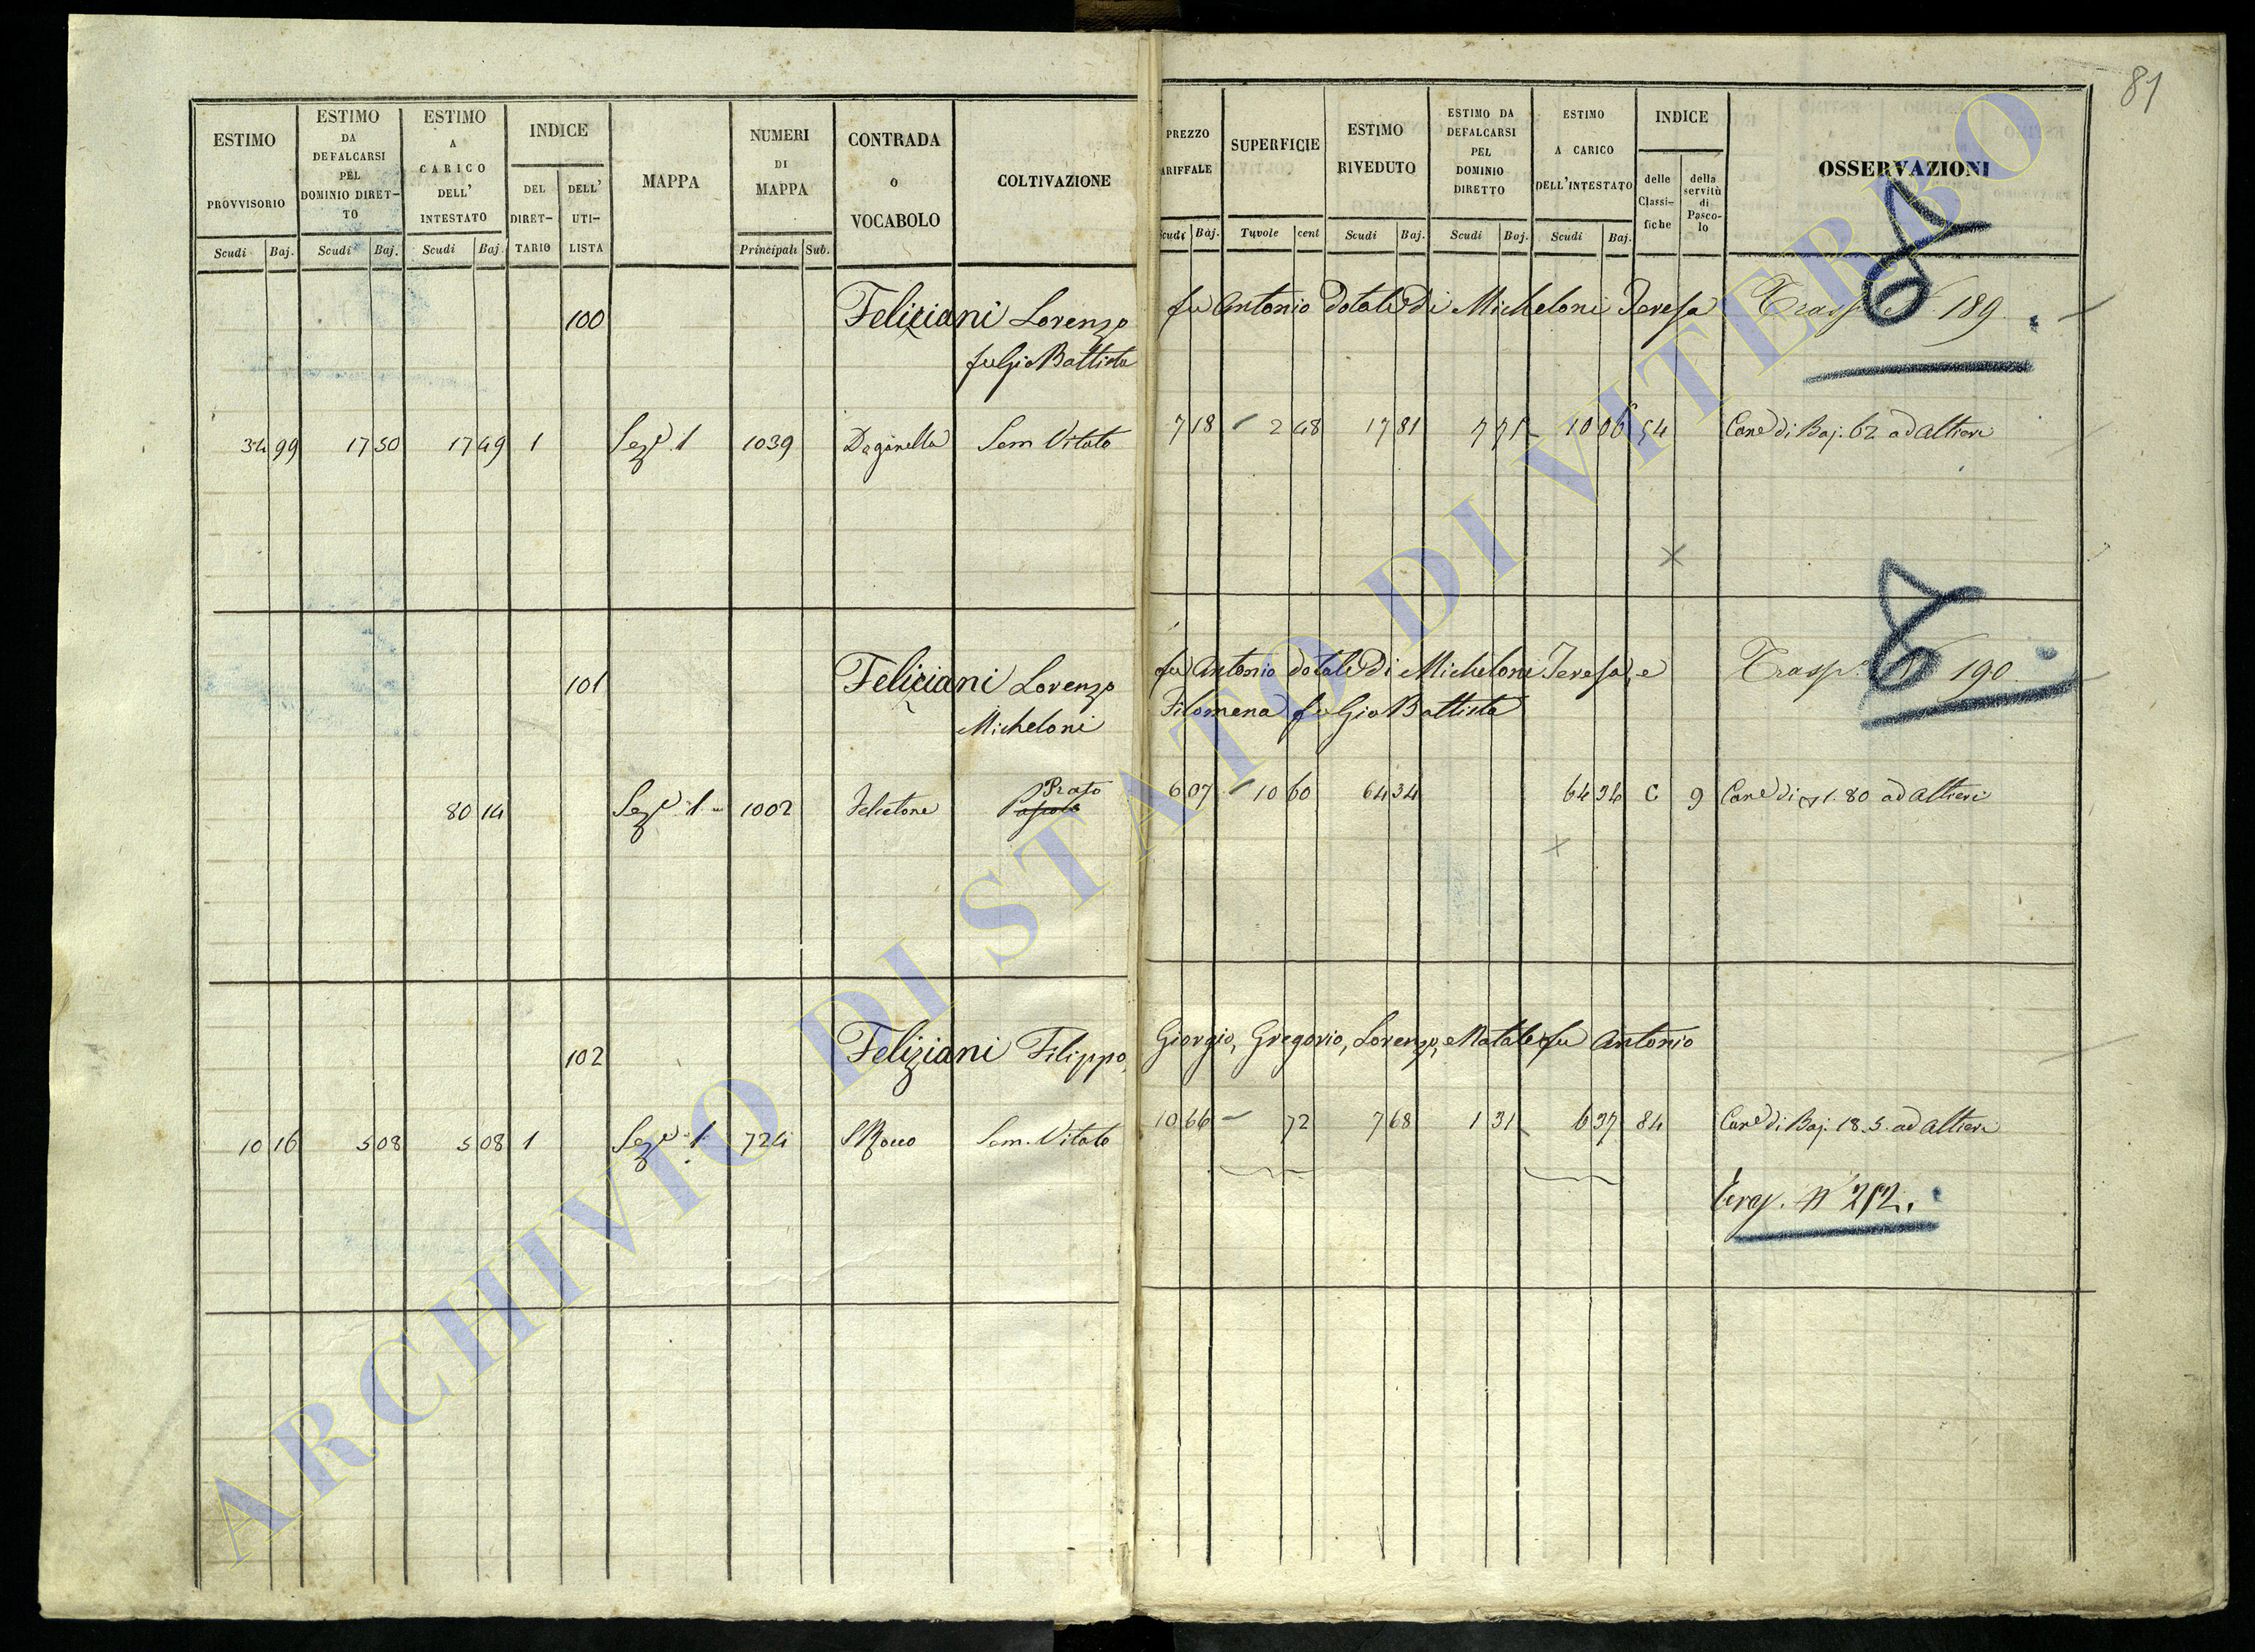 81
ESTIMO PROVVISORIO Scudi Baj.
ESTIMO DA DEFALCARSI PEL DOMINIO DIRET- TO Scudi Baj.
ESTIMO A CARICO DELL' INTESTATO Scudi Baj.
INDICE DEL DIRET- TARIO DELL' UTI- LISTA
MAPPA
NUMERI DI MAPPA Principali Sub.
CONTRADA O VOCABOLO
COLTIVAZIONE
PREZZO ARIFFALE cudi Baj.
SUPERFICIE Tavole cent
ESTIMO RIVEDUTO Scudi Baj.
ESTIMO DA DEFALCARSI PEL DOMINIO DIRETTO Scudi Baj.
ESTIMO A CARICO DELL'INTESTATO Scudi Baj.
INDICE delle Classi- fiche della servitù di Pasco- lo
OSSERVAZIONI
100 Feliziani Lorenzo fu Antonio dotale di Micheloni Teresa Trasp. N 189
fu Gio Battista
34 99 17 50 17 49 1 Sez. 1 1039 Daganella Sem Vitato 7 18 2 48 17 81 7 75 10 06 54 Cane di Baj. 62 ad Altieri
101 Feliziani Lorenzo fu Antonio dotale di Micheloni Teresa, e Trasp. N 190
Micheloni Filomena fu Gio Battista
80 14 Sez. 1 1002 Felcetone Prato 6 07 10 60 64 34 64 34 C 9 Cane di 1.80 ad Altieri
102 Feliziani Filippo, Giorgio, Gregorio, Lorenzo, e Natale fu Antonio
10 16 5 08 5 08 1 Sez. 1 724 S Rocco Sem. Vitato 10 66 72 7 68 1 31 6 37 84 Cane di Baj. 18.5. ad Altieri
Trasp. N 252.
ARCHIVIO DI STATO DI VITERBO